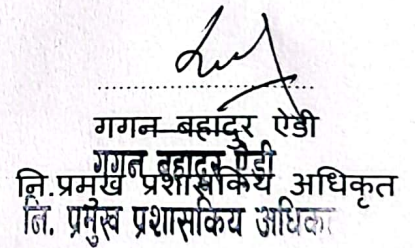 गगन बहादुर ऐडी
गगन बहादुर ऐडी
नि.प्रमुख प्रशासकिय अधिकृत
नि. प्रमुख प्रशासकिय अधिकृत